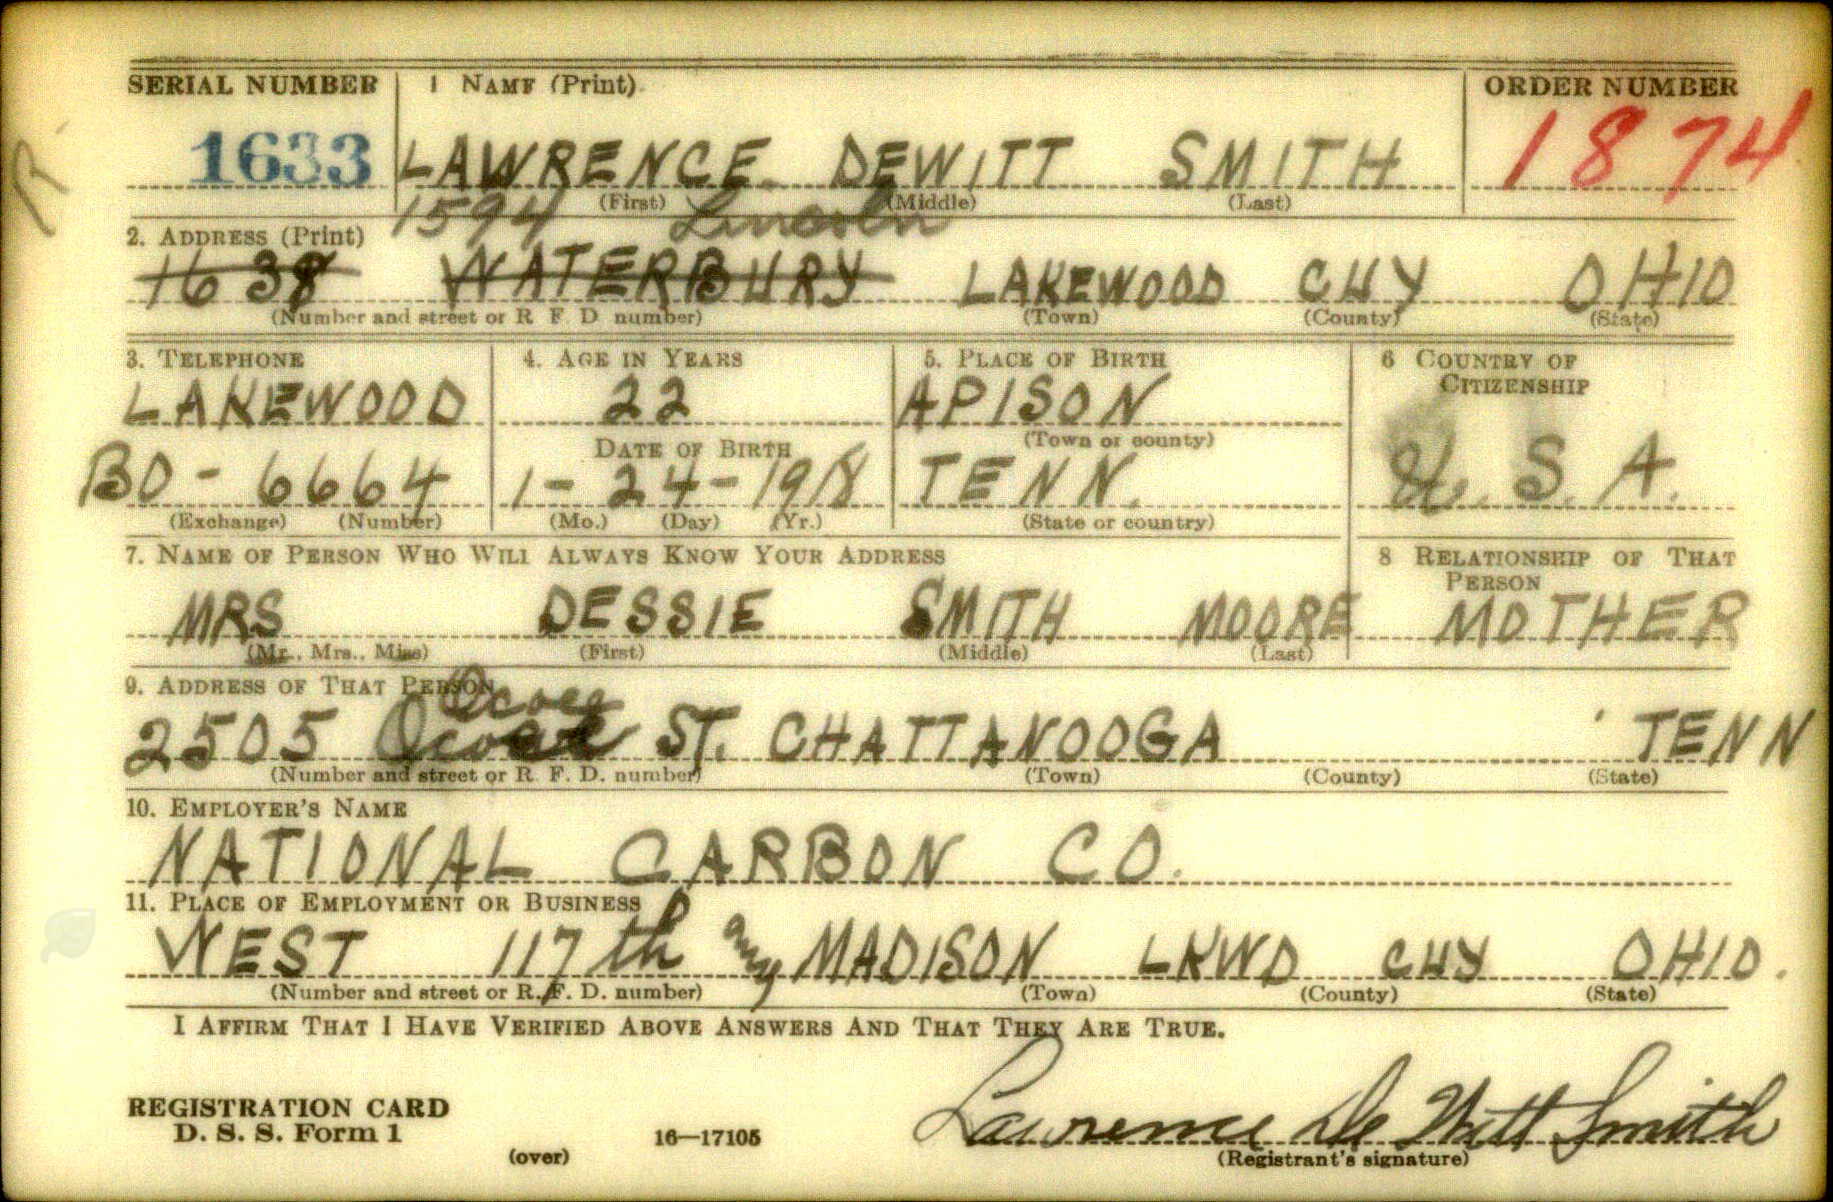 R.
SERIAL NUMBER
1633
1 NAME (Print)
LAWRENCE DEWITT SMITH
(First) (Middle) (Last)
ORDER NUMBER
1874
2. ADDRESS (Print)
1594 Lincoln
1638 WATERBURY LAKEWOOD CUY OHIO
(Number and street or R. F. D. number) (Town) (County) (State)
3. TELEPHONE
LAKEWOOD
BO - 6664
(Exchange) (Number)
4. AGE IN YEARS
22
DATE OF BIRTH
1 - 24 - 1918
(Mo.) (Day) (Yr.)
5. PLACE OF BIRTH
APISON
(Town or county)
TENN.
(State or country)
6 COUNTRY OF
CITIZENSHIP
U. S. A.
7. NAME OF PERSON WHO WILL ALWAYS KNOW YOUR ADDRESS
MRS DESSIE SMITH MOORE
(Mr., Mrs., Miss) (First) (Middle) (Last)
8 RELATIONSHIP OF THAT
PERSON
MOTHER
9. ADDRESS OF THAT PERSON
Ocoee
2505 ST. CHATTANOOGA TENN
(Number and street or R. F. D. number) (Town) (County) (State)
10. EMPLOYER'S NAME
NATIONAL CARBON CO.
11. PLACE OF EMPLOYMENT OR BUSINESS
WEST 117th MADISON LKWD CUY OHIO.
(Number and street or R. F. D. number) (Town) (County) (State)
I AFFIRM THAT I HAVE VERIFIED ABOVE ANSWERS AND THAT THEY ARE TRUE.
REGISTRATION CARD
D. S. S. Form 1
(over)
16—17105
Lawrence De Witt Smith
(Registrant's signature)